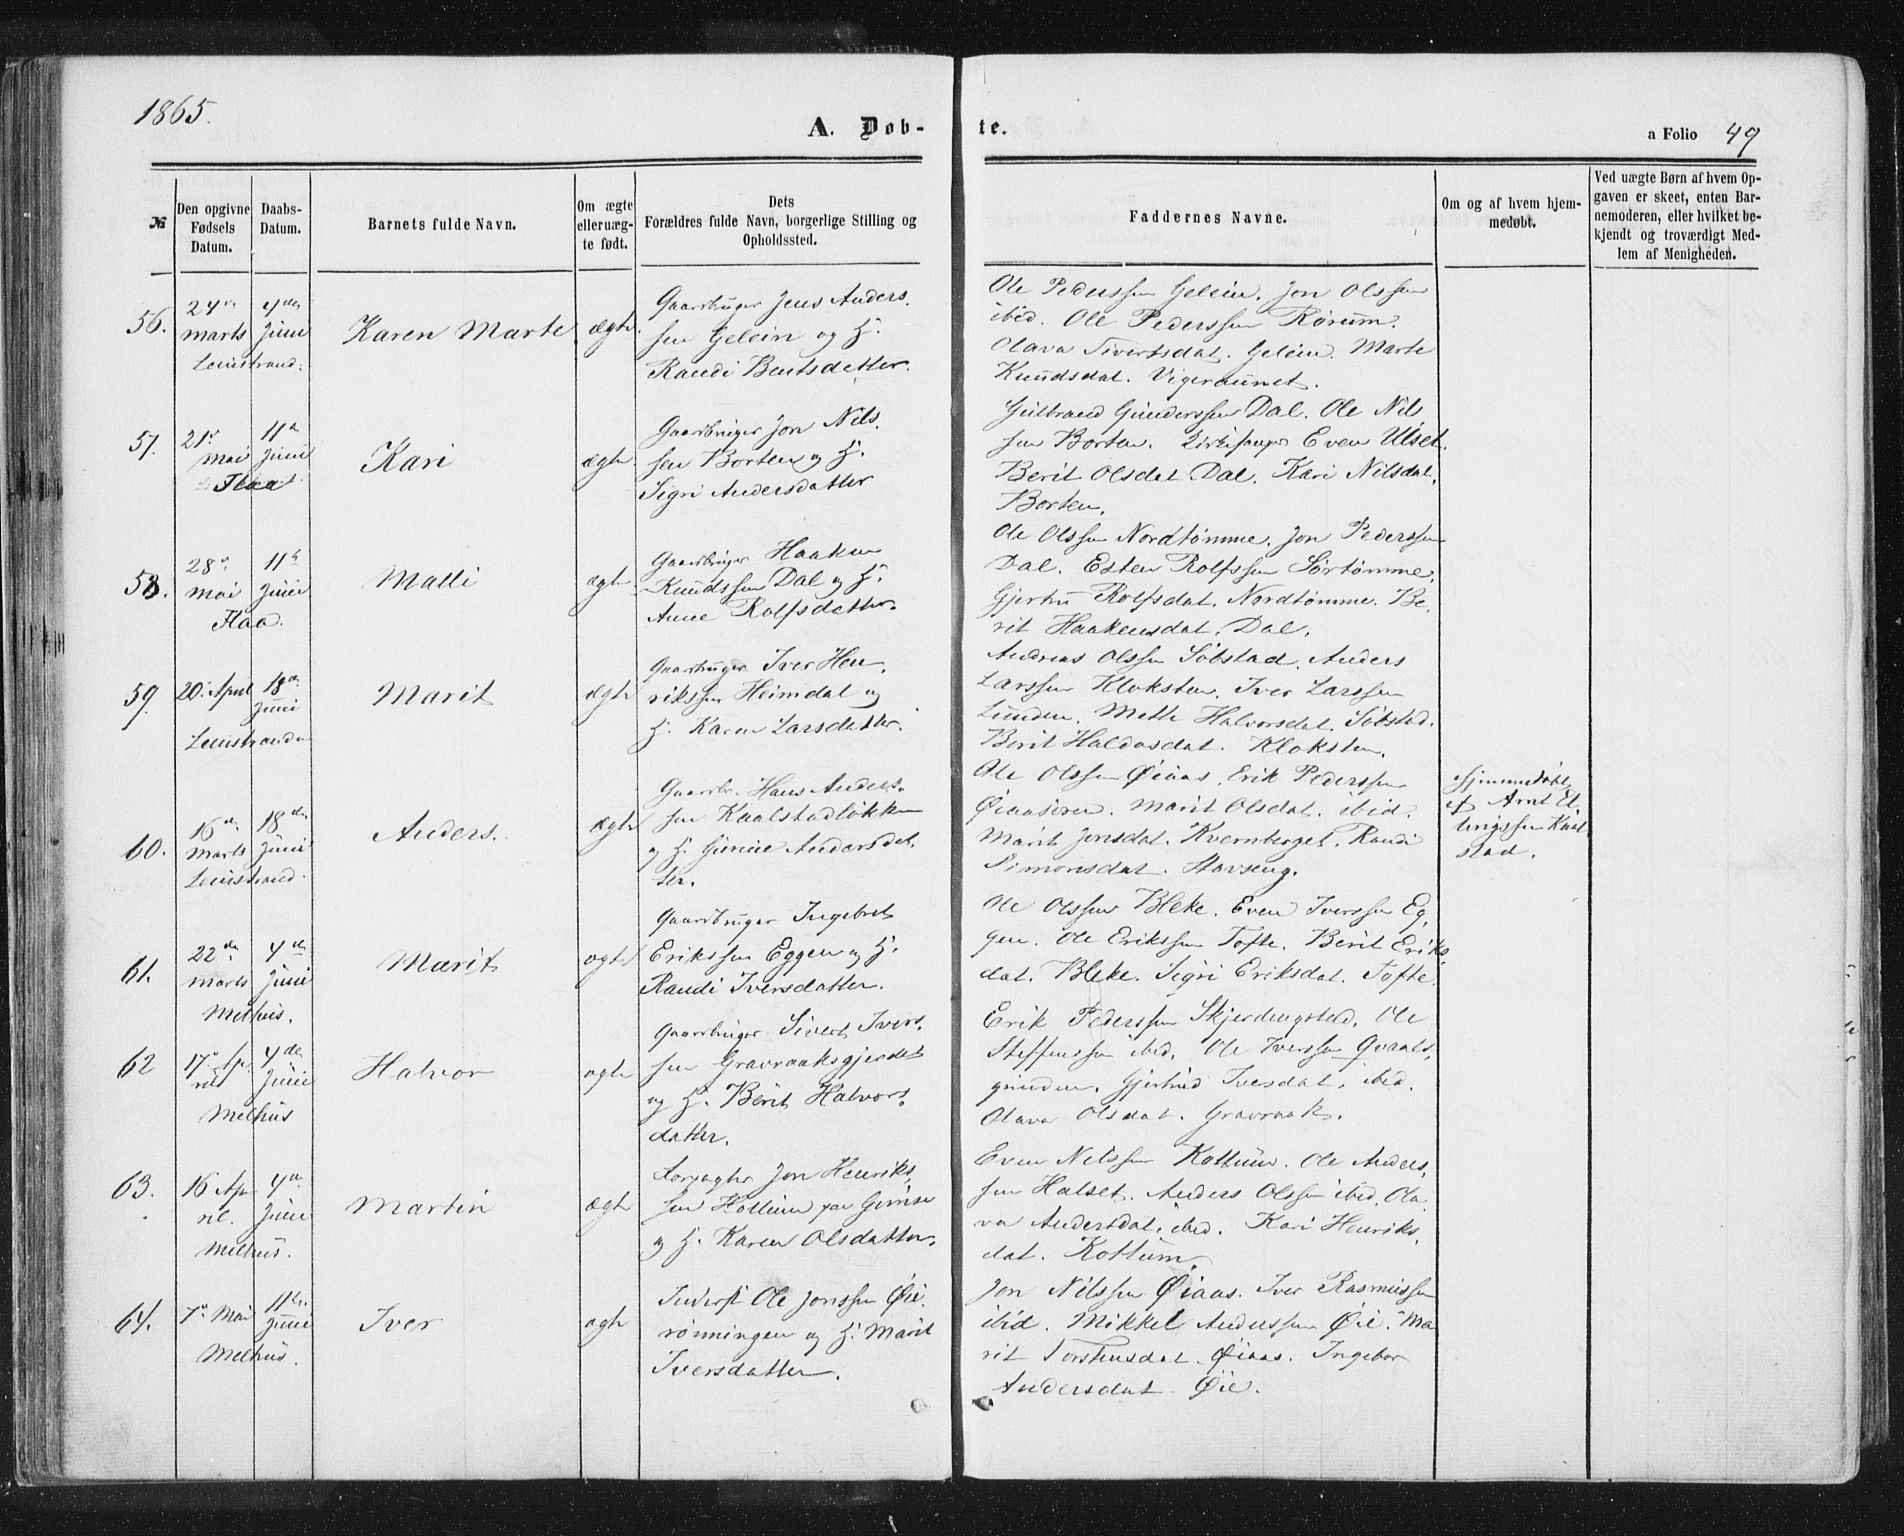 1865.
A. Døb-
te.
a Folio 49
№
Den opgivne Fødsels Datum.
Daabs-Datum.
Barnets fulde Navn.
Om ægte eller uægte født.
Dets Forældres fulde Navn, borgerlige Stilling og Opholdssted.
Faddernes Navne.
Om og af hvem hjemmedøbt.
Ved uægte Børn af hvem Opgaven er skeet, enten Barnemoderen, eller hvilket bekjendt og troværdigt Medlem af Menigheden.
56.
24de marts
4de Juni
Leinstrand.
Karen Marte
ægte
Gaardbruger Jens Anders.
sen Gelein og H.
Randi Bentsdatter.
Ole Pederssen Gelein. Jon Olssen
ibid. Ole Pederssen Rørum.
Olava Sivertsdat. Gelein. Marte
Knudsdat. Vigeraunet.
57.
21 mai
11 Juni
Flaa
Kari
ægte
Gaardbruger Jon Nils.
sen Borten og H.
Sigri Andersdatter
Gulbrand Gunderssen Dal. Ole Nils
sen Borten. Kirkesanger Even Ulset.
Berit Olsdat Dal. Kari Nilsdat.
Borten.
58.
28 mai
11 Juni
Flaa.
Malli
ægte
Gaardbruger Haaken
Knudssen Dal og H.
Anne Rolfsdatter.
Ole Olssen Nordtømme. Jon Pederssen
Dal. Esten Rolfssen Sørtømme.
Gjertru Rolfsdat. Nordtømme. Be.
rit Haakensdat. Dal.
59.
20. April
18de Juni
Leinstranda
Marit
ægte
Gaardbruger Iver Hen.
rikssen Heimdal og
H. Karen Larsdatter.
Andreas Olssen Søbstad. Anders
Larssen Kloksten. Iver Larssen
Lunden. Mette Halvorsdat. Søbstad.
Berit Haldosdat. Kloksten.
60.
16de Marts
18de Juni
Leinstrand.
Anders.
ægte
Gaardbr. Hans Anders.
sen Kaalstadløkken
og H. Gunne Andersdat.
ter.
Ole Olssen Øiaas. Erik Pederssen
Øiaasøren. Marit Olsdat. ibid.
Marit Jonsdat. Kvernberget. Randi
Simonsdat. Stavseng.
Hjemmedøbt
af Arnt El.
lingssen Kaal
stad.
61.
22de marts
4de Juni
Melhus.
Marit
ægte
Gaardbruger Ingebret
Erikssen Eggen og H.
Randi Iversdatter.
Ole Olssen Bleke. Even Iverssen Eg.
gen. Ole Erikssen Tofte. Berit Eriks
dat. Bleke. Sigri Eriksdat. Tofte.
62
17de April
4de Juni
Melhus
Halvor
ægte
Gaardbruger Sivert Ivers.
sen Gravraaksgjerdet
og H. Berit Halvors.
datter.
Erik Pederssen Skjerdingstad. Ole
Steffenssen ibid. Ole Iverssen Qvaals.
grinden. Gjertrud Iversdat. ibid.
Olava Olsdat. Gravraak.
63.
16 April.
4de Juni
Melhus.
Martin
ægte
Forpagter Jon Henriks.
sen Kottum paa Gimse
og H. Karen Olsdatter.
Even Nilssen Kottum. Ole Anders.
sen Halset. Anders Olssen ibid. Ola.
va Andersdat. ibid. Kari Henriks.
dat. Kottum.
64.
7de Mai
11te Juni
Melhus.
Iver
ægte
Inderst Ole Jonssen Øie.
rønningen og H. Marit
Iversdatter.
Jon Nilssen Øiaas. Iver Rasmussen
ibid. Mikkel Anderssen Øie. Ma
rit Torstensdat. Øiaas. Ingebor
Andersdat. Øie.